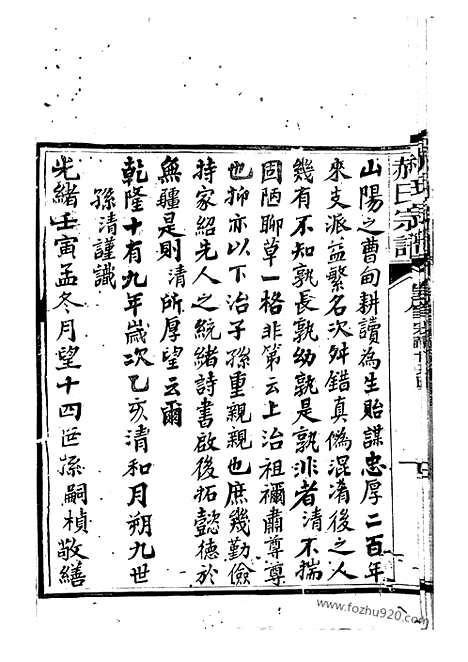 郝氏宗譜
山陽之曹甸耕讀為生貽謀忠厚二百年
來支派益繁名次舛錯真僞混淆後之人
幾有不知孰長孰幼孰是孰非者清不揣
固陋聊草一格非第云上治祖禰肅尊尊
也抑亦以下治子孫重親親也庶幾勤儉
持家紹先人之統緒詩書啟後拓懿德於
無疆是則清所厚望云爾
乾隆十有九年歲次乙亥清和月朔九世
孫清謹識
光緒壬寅孟冬月望十四世孫嗣楨敬繕
www.fozhu920.com